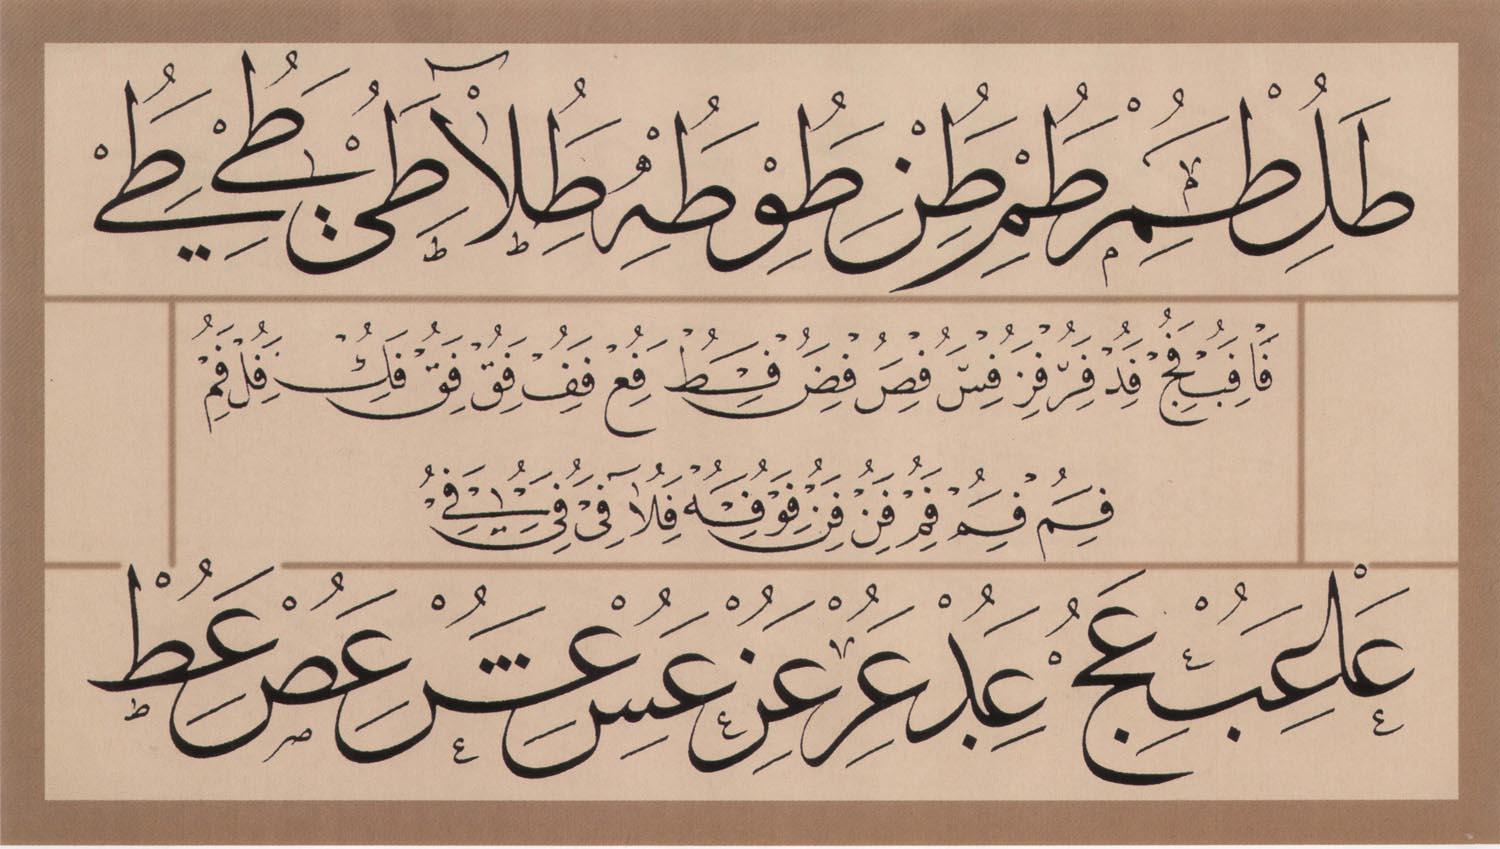 طل طم طم طن طو طه طلا طي طے طے
فا فب فج فد فر فز فس فص فض فط فع فف فق فق فك فل فم
فم فم فم فن فن فو فه فلا في في فے
عا عب عج عد عر عز عس عش عص عط